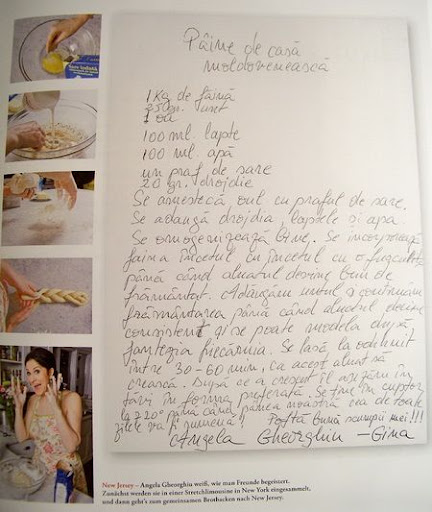 Pâine de casă
moldovenească
1 Kg de făină
250 gr. unt
1 ou
100 ml lapte
100 ml apă
un praf de sare
20 gr. drojdie
Se amestecă oul cu praful de sare.
Se adaugă drojdia, laptele și apa.
Se omogenizează bine. Se incorporează
făina încetul cu încetul cu o
până când aluatul devine bun de
frământat. Adăugăm untul și continuăm
frământarea până când aluatul devine
consistent și se poate modela după
fantezia fiecăruia. Se lasă la odihnit
între 30-60 min, ca acest aluat să
crească. După ce a crescut îl așezăm în
tăvi în forma preferată. Se ține în cuptor
la 220° până când pâinea noastră cea de toate
zilele va fi rumenă! Poftă bună scumpii mei!!!
Angela Gheorghiu - Gina
New Jersey – Angela Gheorghiu weiß, wie man Freunde begeistert.
Zunächst werden sie in einer Stretchlimousine in New York eingesammelt,
und dann geht's zum gemeinsamen Brotbacken nach New Jersey.